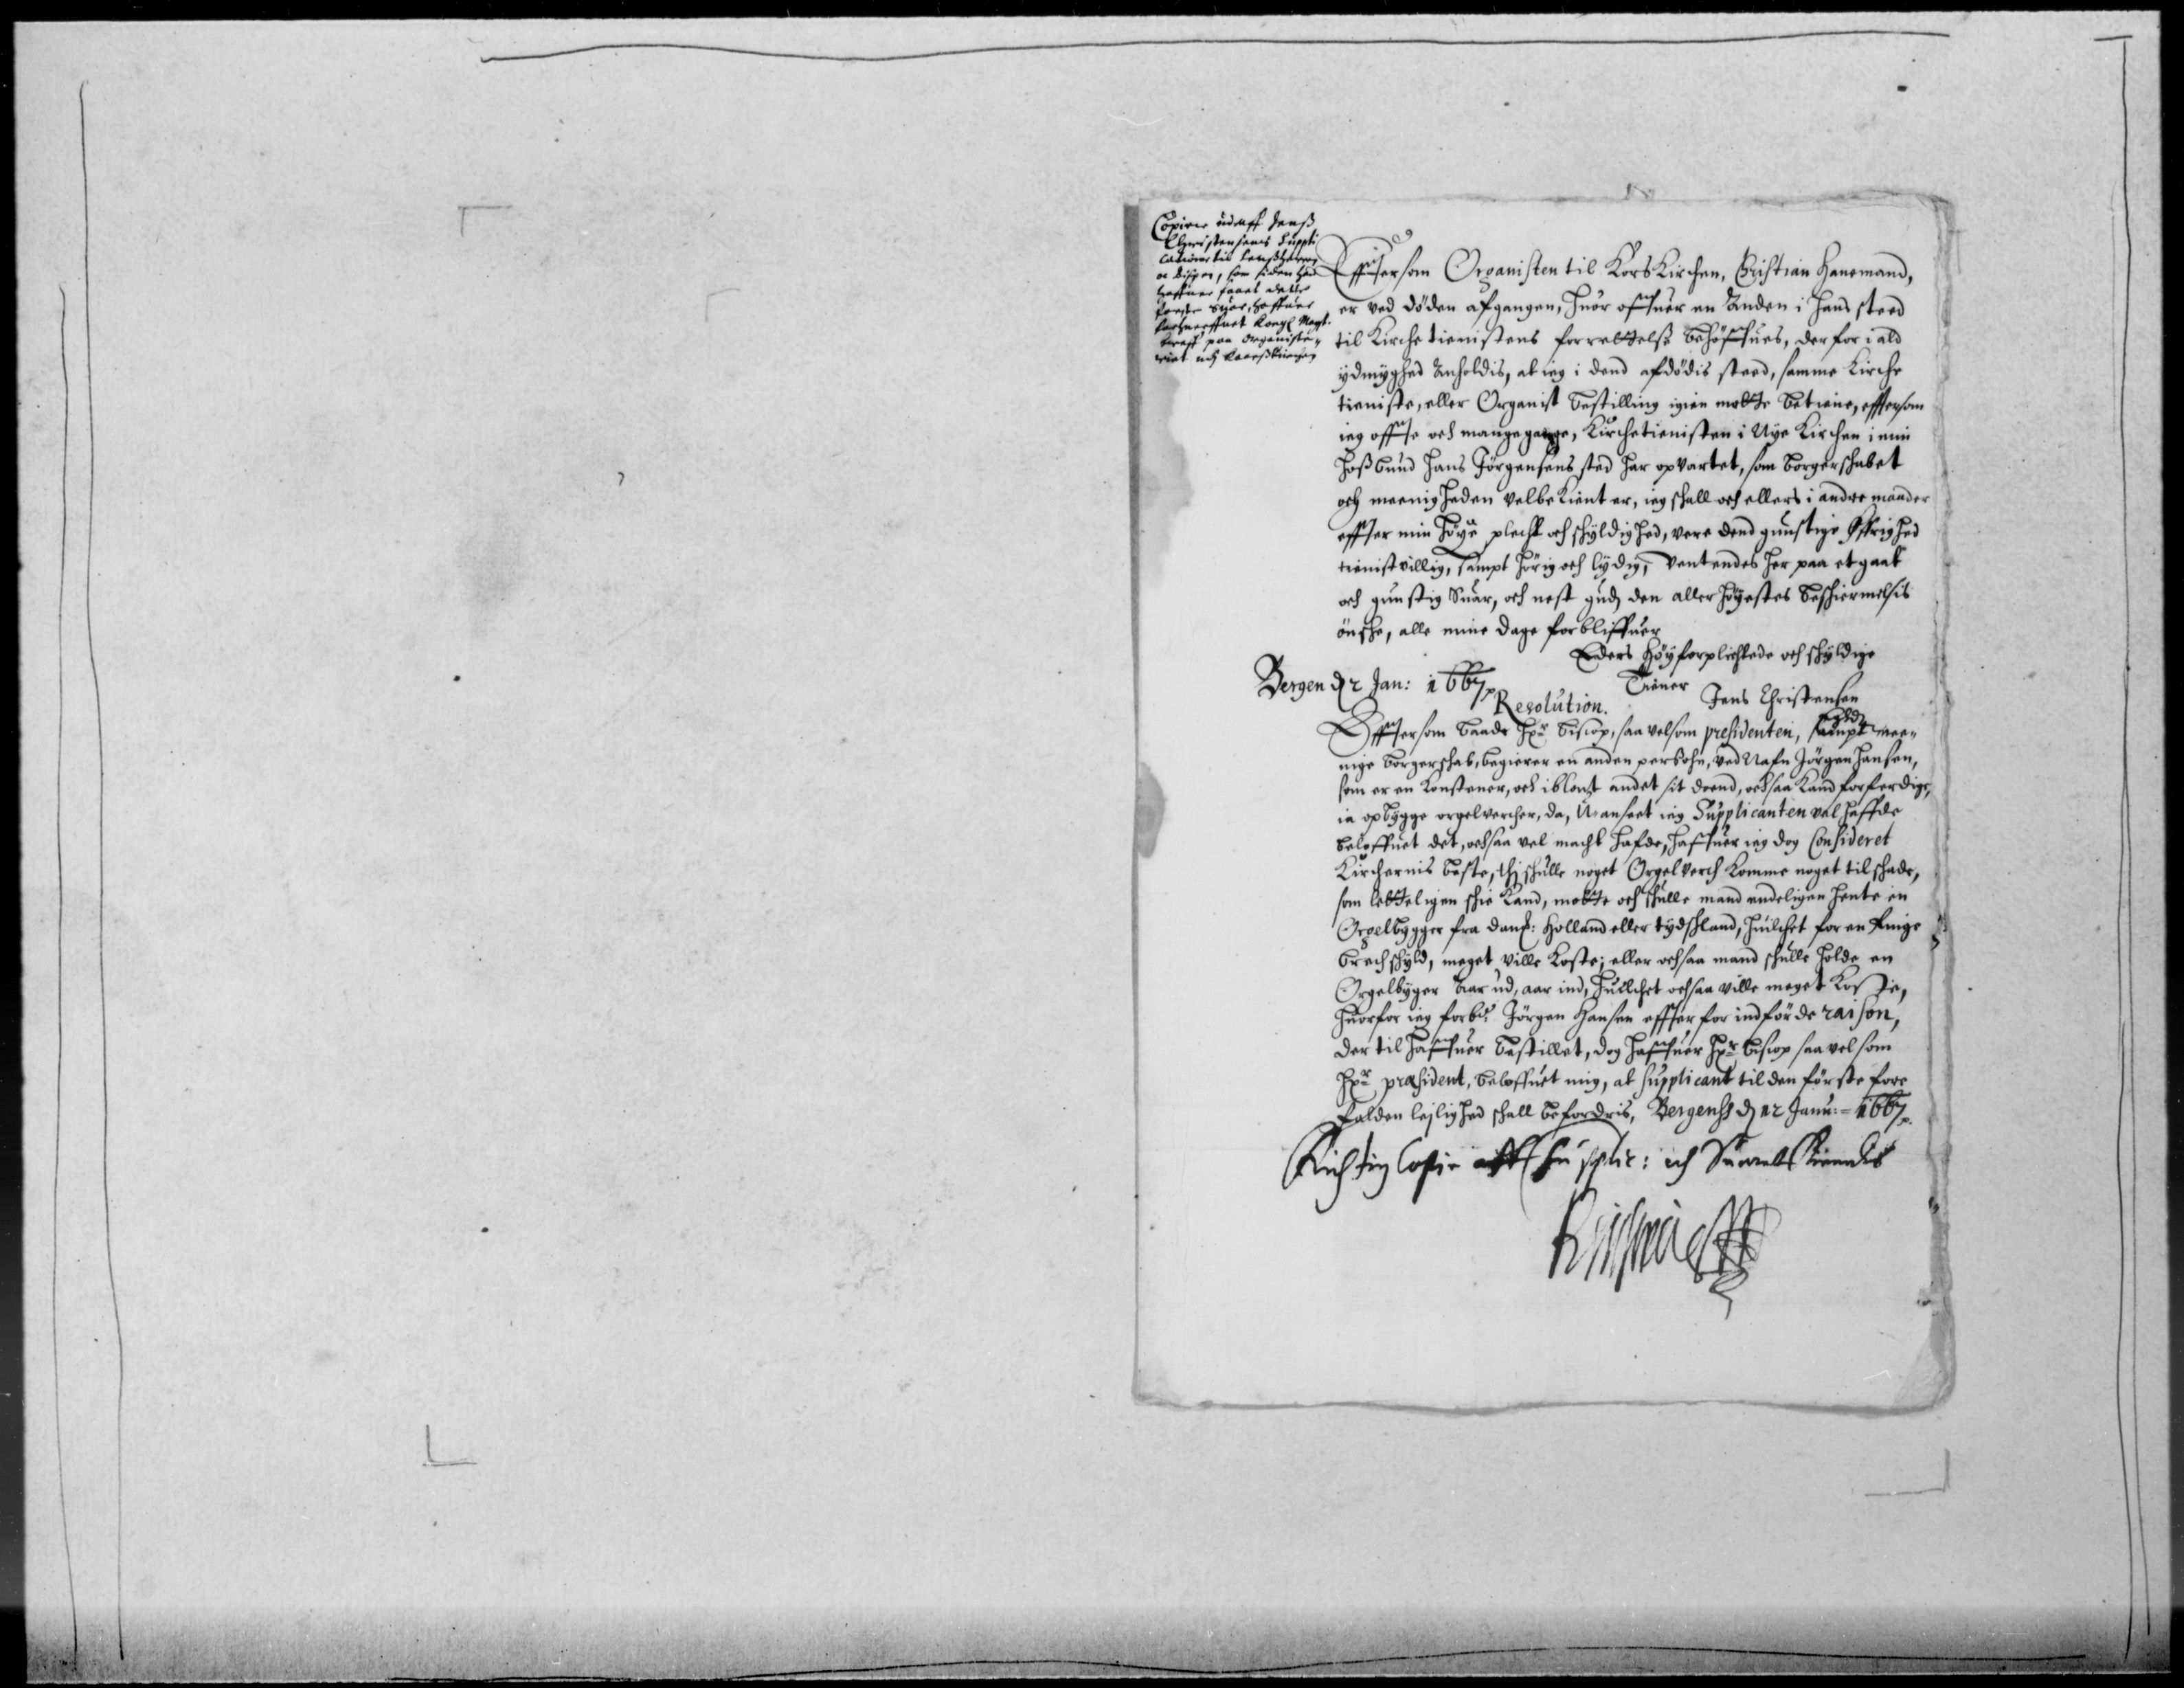 Copien udaff Jenß
Christensens Suppli
cation til Lenßherren
oc Bispen, som siden hand
haffuer faaet dette
forste Suar, haffuer
Kongl: Mayt.
breff paa Organiste,,
riet udj Kaarßkirchen
Effterson Organisten til Kors Kirchen, Christian Hanemand,
er ved döden afgangen, huor offuer en Anden i hans steed
til Kirche tienistens forrettelse behöffues, der for i ald
ydmyghed Anholdis, at ieg i dend afdödis steed, samme Kirche
tieniste, eller Organist bestilling igien motte betiene, efftersom
ieg offte och mange gange, Kirchetienisten i Nye Kirchen i min
Hoßbund Hans Jörgensens sted har opvartet, som borgerskabet
och meenigheden velbekient er, ieg schall och ellers i andre maader
effter min höye plecht och schyldighed, vere dend gunstige Öffrighed
tienistvillig, sampt hörig och lydig, Ventendes her paa et gaat
och gunstig Suar, och nest gudz den aller höyestes beschiermelsis
önsche, alle mine dage forbliffuer
Eders Höyforplichtede och schyldige
Tiener
Bergen d 2 Jan: 1667.
Jens Christensen
Resolution.
Efftersom baade Hr bisscop, saa velsom presidenten, sampt mee,,
nige borgerskab, begierer en anden persohn, ved Nafn Jörgen Hansen,
som er en Konstener, och iblant andet sit doend, ochsaa Kand forferdige,
ia opbygge orgelvercher, da, Uanseet ieg Supplicanten vel haffde
beloffuet det, ochsaa vel macht hafde, haffuer ieg dog Consideret
Kirchernis beste, thj schulle noget Orgelverch Komme noget til schade,
som letteligen schie Kand, motte och schulle mand endeligen hente en
Orgelbygger fra danß: Holland eller tydschland, huilchet for en Ringe
brechschyld, meget ville Koste; eller ochsaa mand schulle holde en
Orgelbyger Aar ud, aar ind, huilchet ochsaa ville meget Koste,
huorfor ieg forbte Jörgen Hansen effter for indförde raison,
der til haffuer bestillet, dog haffuer Hr biscop saa vel som
Hr præsident, beloffuet mig, at supplicant til den förste fore
falden lejlighed schall befordris, Bergenhs d 12 Janu: 1667.
Richtig Copie aff Supplic: och Suarets Kiendis